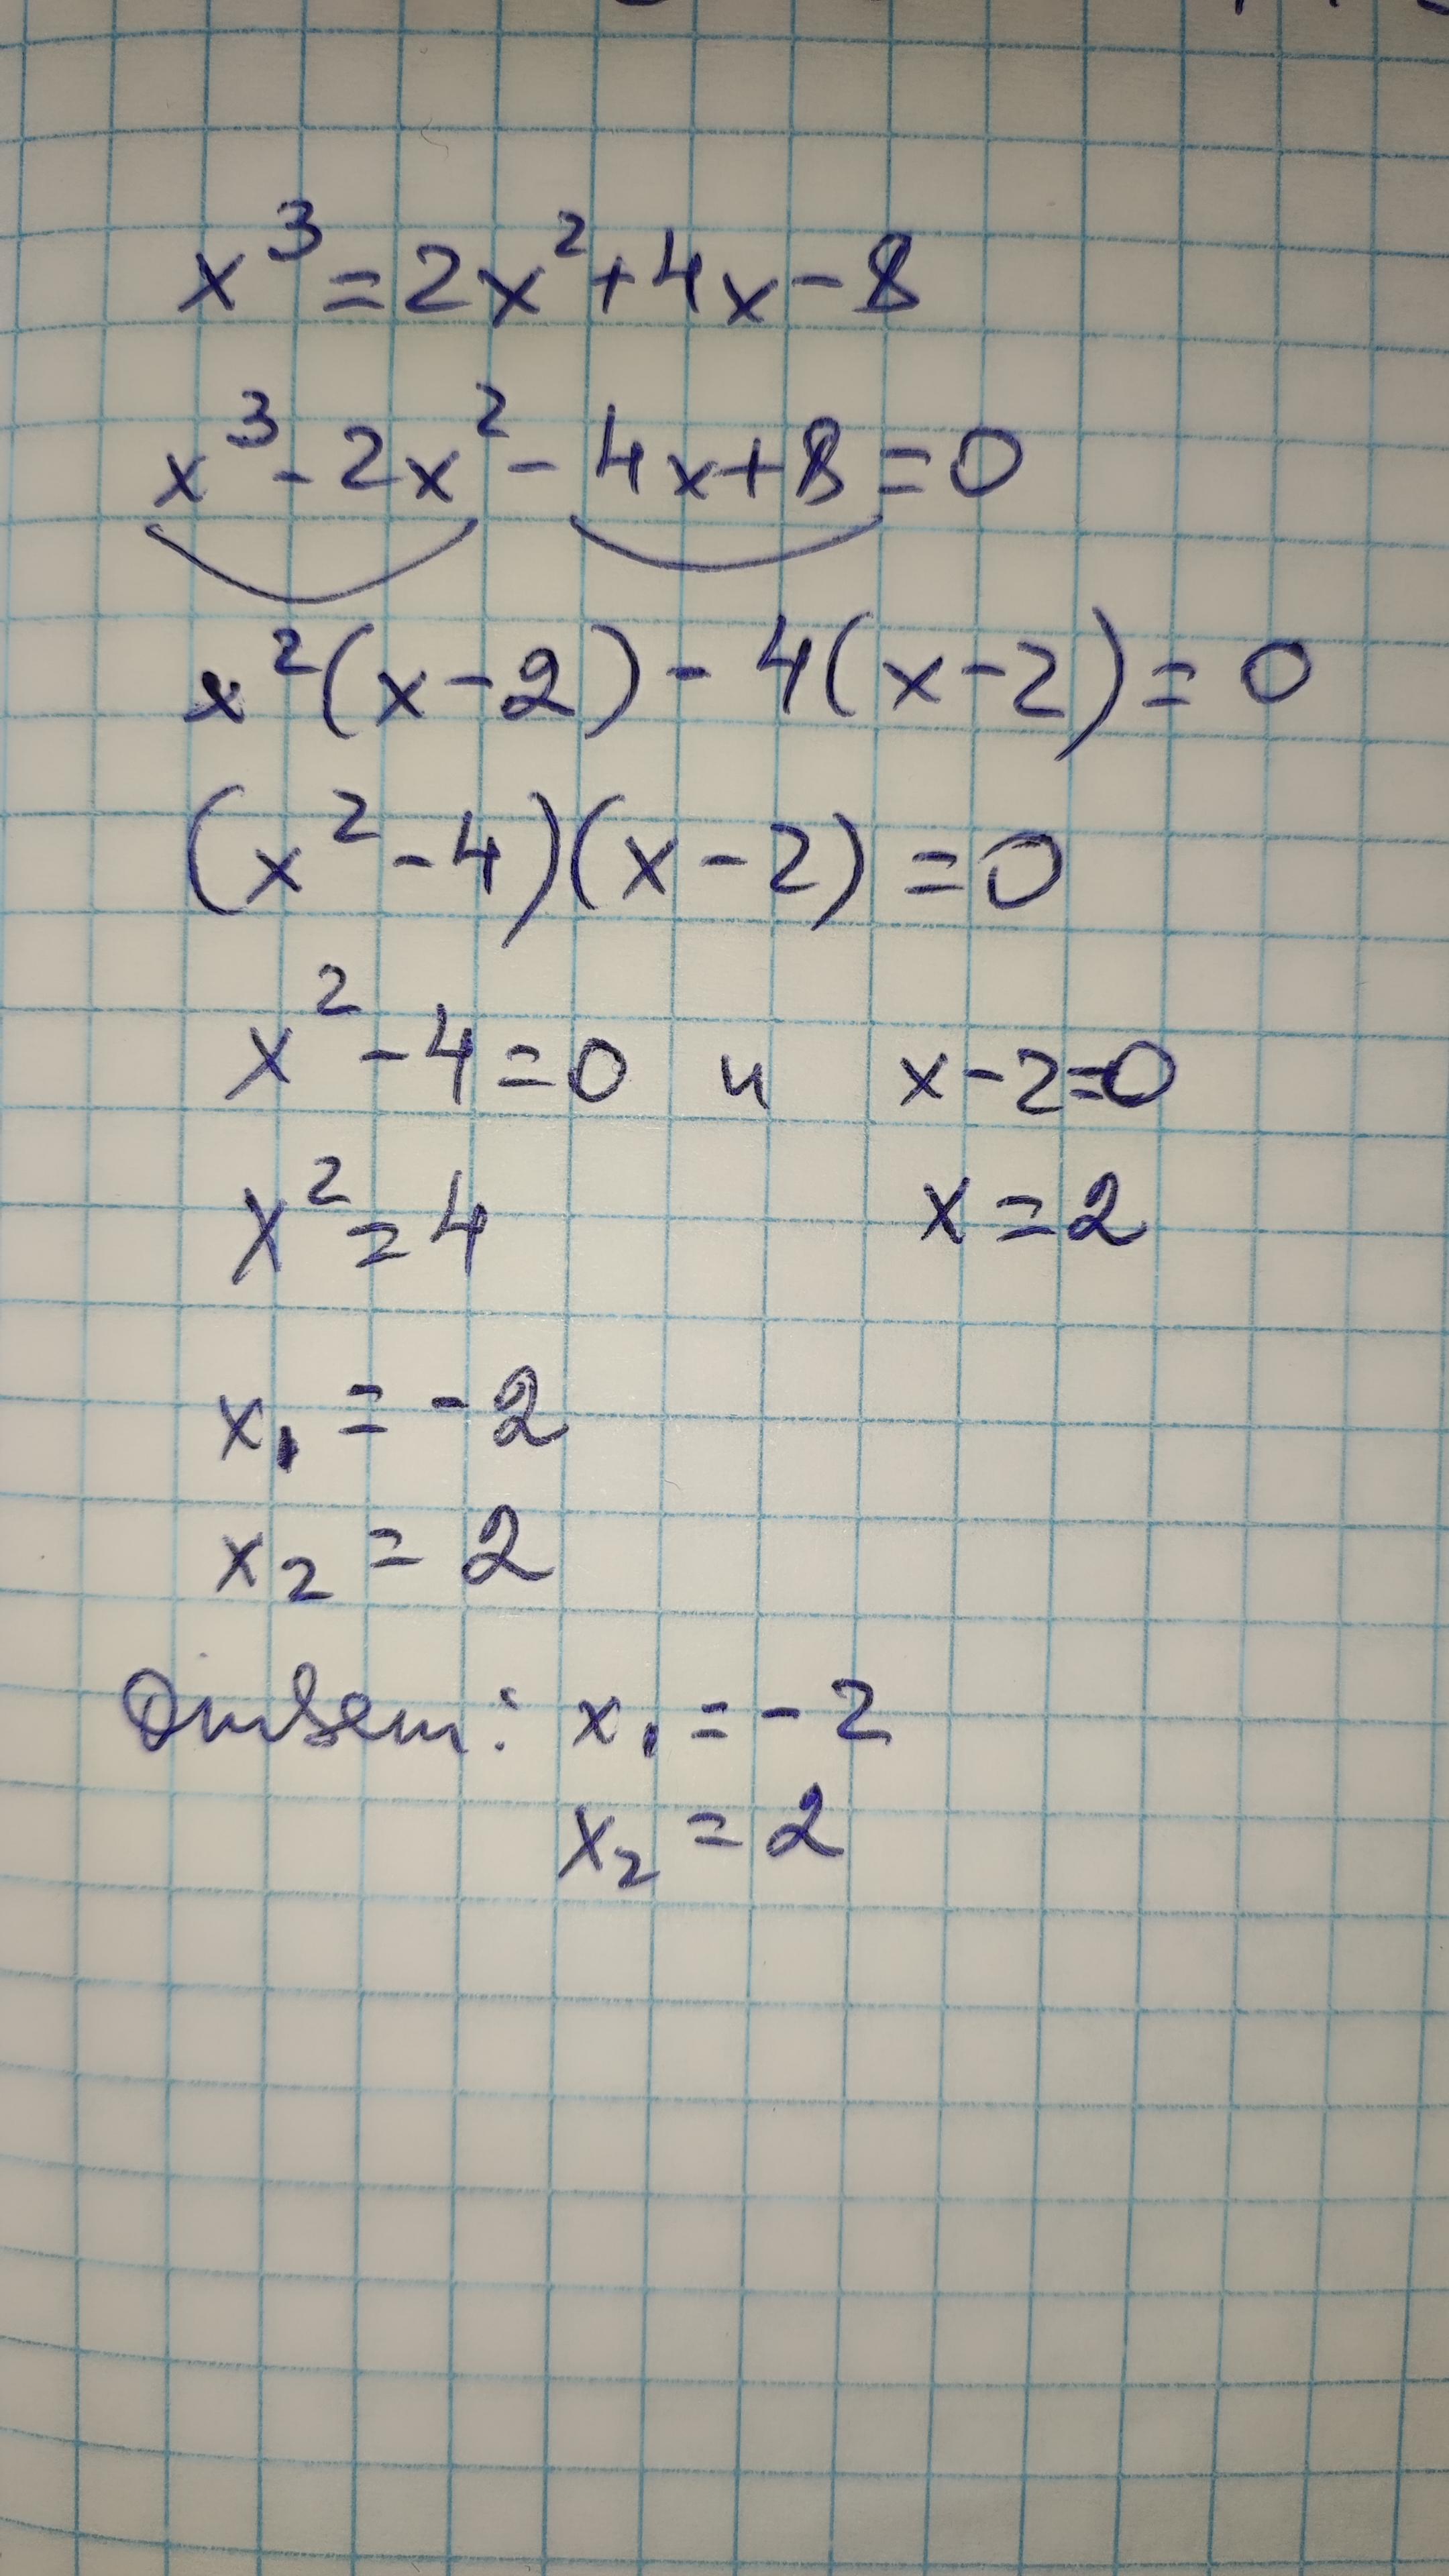 x³ = 2x² + 4x - 8
x³ - 2x² - 4x + 8 = 0
x²(x - 2) - 4(x - 2) = 0
(x² - 4)(x - 2) = 0
x² - 4 = 0 и x - 2 = 0
x² = 4 x = 2
x₁ = -2
x₂ = 2
Ответ: x₁ = -2
x₂ = 2